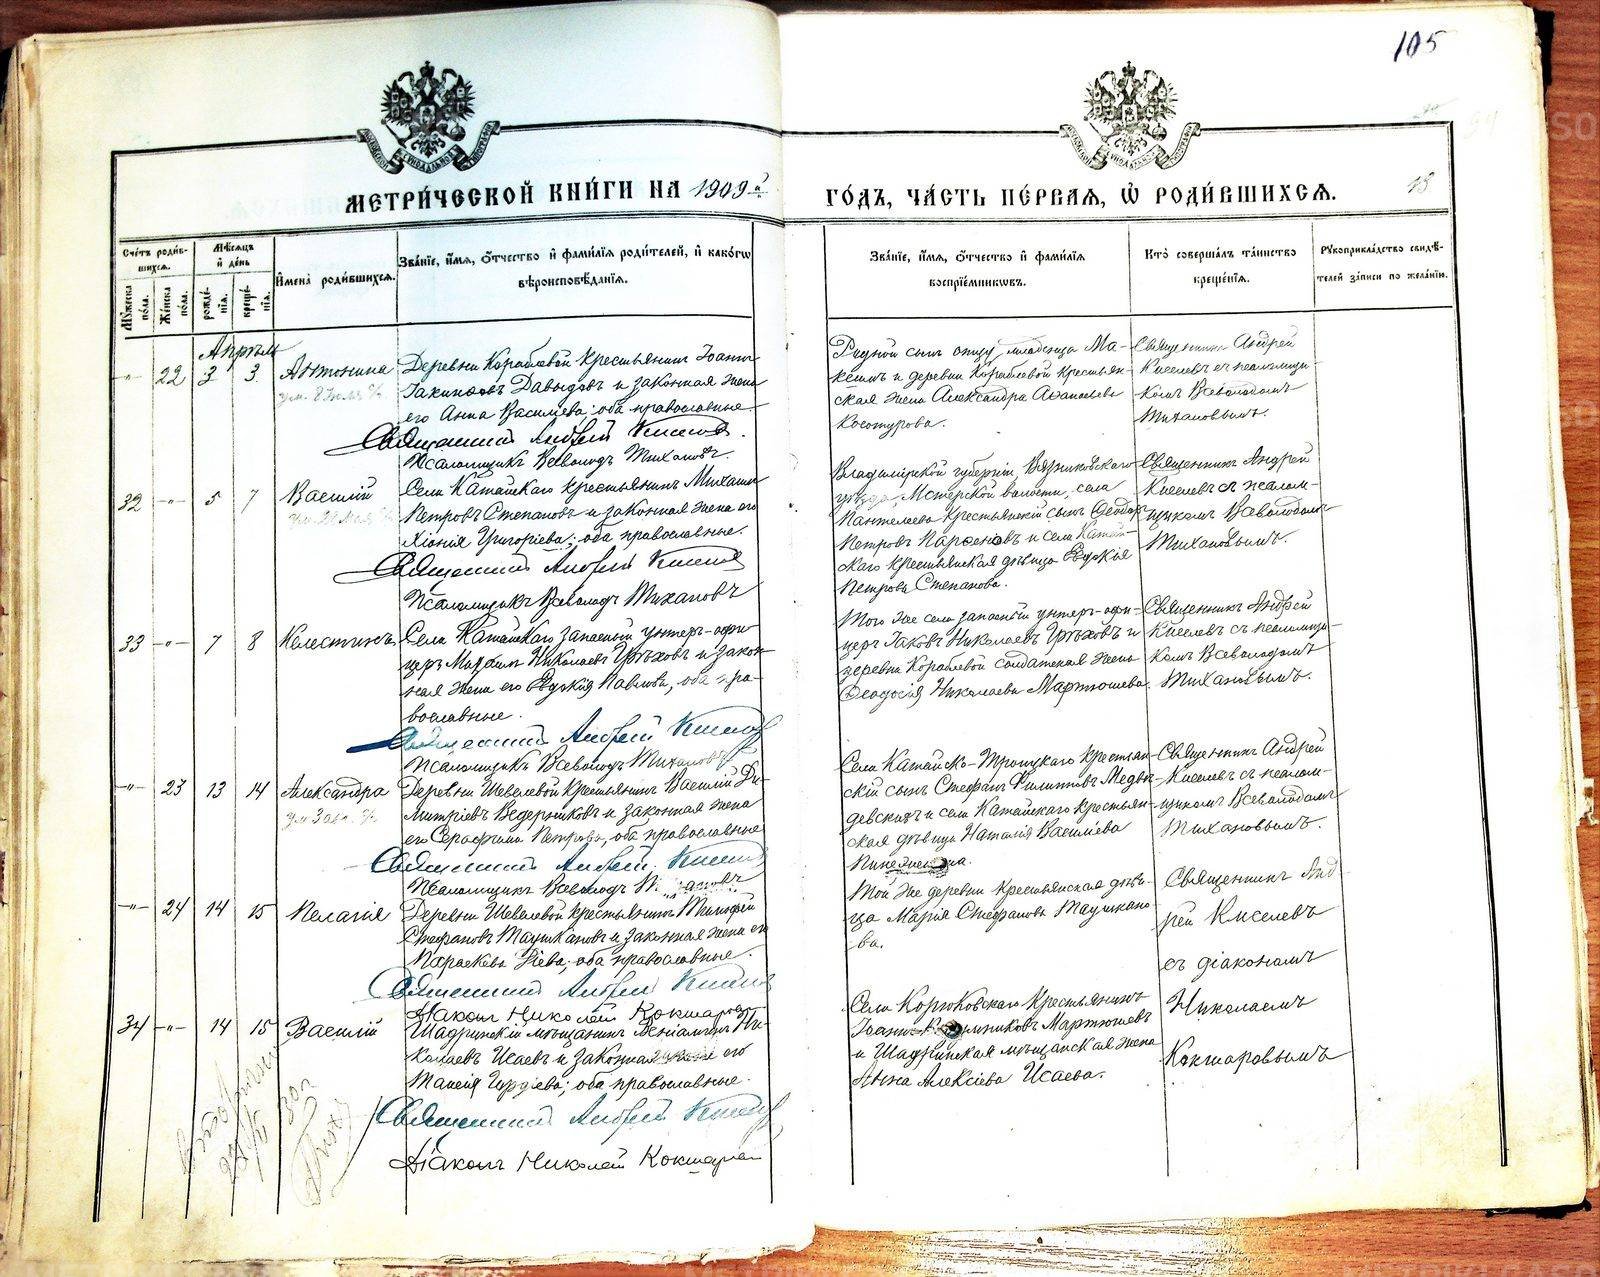 105
МЕТРИ́ЧЕСКОЙ КНИ́ГИ НА 1909й ГО́ДЪ, ЧА́СТЬ ПЕ́РВАЯ, Ѡ РОДИ́ВШИХСѦ.
18
Сче́тъ роди́в-
шихсѧ.
Мꙋ́жеска по́ла.
Же́нска по́ла.
Мѣ́сѧцъ и҆ де́нь
рожде́-
нїѧ.
креще́-
нїѧ.
И҆мена̀ роди́вшихсѧ.
Зва́нїе, и҆́мѧ, о҆́тчество и҆ фами́лїѧ роди́телей, и҆ како́гѡ
вѣроисповѣ́данїѧ.
Зва́нїе, и҆́мѧ, о҆́тчество и҆ фами́лїѧ
воспрїе́мникѡвъ.
Кто̀ соверша́лъ та́инство
креще́нїѧ.
Рꙋкоприкла́дство свидѣ́-
телей за́писи по жела́нїю.
Апрѣль
-"- 22 3 3 Антонина
Деревни Кораблевой крестьянинъ Іоаннъ
Іакинѳовъ Давыдовъ и законная жена
его Анна Васильева; оба православные.
Священникъ Андрей Киселевъ.
Псаломщикъ Всеволодъ Тихановъ.
Родной сынъ отцу младенца Ма-
ксимъ и деревни Кораблевой крестьян-
ская жена Александра Аѳанасьева
Косотурова.
Священникъ Андрей
Киселевъ съ псаломщи-
комъ Всеволодомъ
Тихановымъ.
32 -"- 5 7 Василій
Села Катайскаго крестьянинъ Михаилъ
Петровъ Степановъ и законная жена его
Хіонія Григоріева; оба православные.
Священникъ Андрей Киселевъ
Псаломщикъ Всеволодъ Тихановъ
Владимірской губерніи, Вязниковскаго
уѣзда Мстерской волости, села
Пантелеева крестьянскій сынъ Ѳеодоръ
Петровъ Парѳеновъ и села Катай-
скаго крестьянская дѣвица Евдокія
Петрова Степанова.
Священникъ Андрей
Киселевъ съ псалом-
щикомъ Всеволодомъ
Тихановымъ.
33 -"- 7 8 Келестинъ
Села Катайскаго запасный унтеръ-офи-
церъ Николаевъ Грѣховъ и закон-
ная жена его Евдокія Павлова, оба пра-
вославные.
Священникъ Андрей Киселевъ
Псаломщикъ Всеволодъ Тихановъ
Того же села запасный унтеръ-офи-
церъ Іаковъ Николаевъ Грѣховъ и
деревни Кораблевой солдатская жена
Ѳеодосія Николаева Мартюшева.
Священникъ Андрей
Киселевъ съ псаломщи-
комъ Всеволодомъ
Тихановымъ.
-"- 23 13 14 Александра
Деревни Шевелевой крестьянинъ Василій Ди-
митріевъ Ведерниковъ и законная жена
его Серафима Петрова, оба православные
Священникъ Андрей Киселевъ
Псаломщикъ Всеволодъ Тихановъ
Села Катайско-Троицкаго крестьян-
скій сынъ Стефанъ Филипповъ Медвѣ-
девскихъ и села Катайскаго крестьян-
ская дѣвица Наталія Васильева
Священникъ Андрей
Киселевъ съ псалом-
щикомъ Всеволодомъ
Тихановымъ.
-"- 24 14 15 Пелагія
Деревни Шевелевой крестьянинъ Тимоѳей
Стефановъ Таушкановъ и законная жена его
Параскева; оба православные.
Священникъ Андрей Киселевъ
Діаконъ Николай Кокшаровъ
Той же деревни крестьянская дѣви-
ца Марія Стефанова Таушкано-
ва.
Священникъ Анд-
рей Киселевъ
съ діакономъ
Николаемъ
Кокшаровымъ
34 -"- 14 15 Василій
Шадринскій мѣщанинъ Веніаминъ Ни-
колаевъ Исаевъ и законная жена его
Таисія; оба православные.
Священникъ Андрей Киселевъ
Діаконъ Николай Кокшаровъ
Села Корюковскаго крестьянинъ
Іоаннъ Мартюшевъ
и Шадринская мѣщанская жена
Анна Алексіева Исаева.